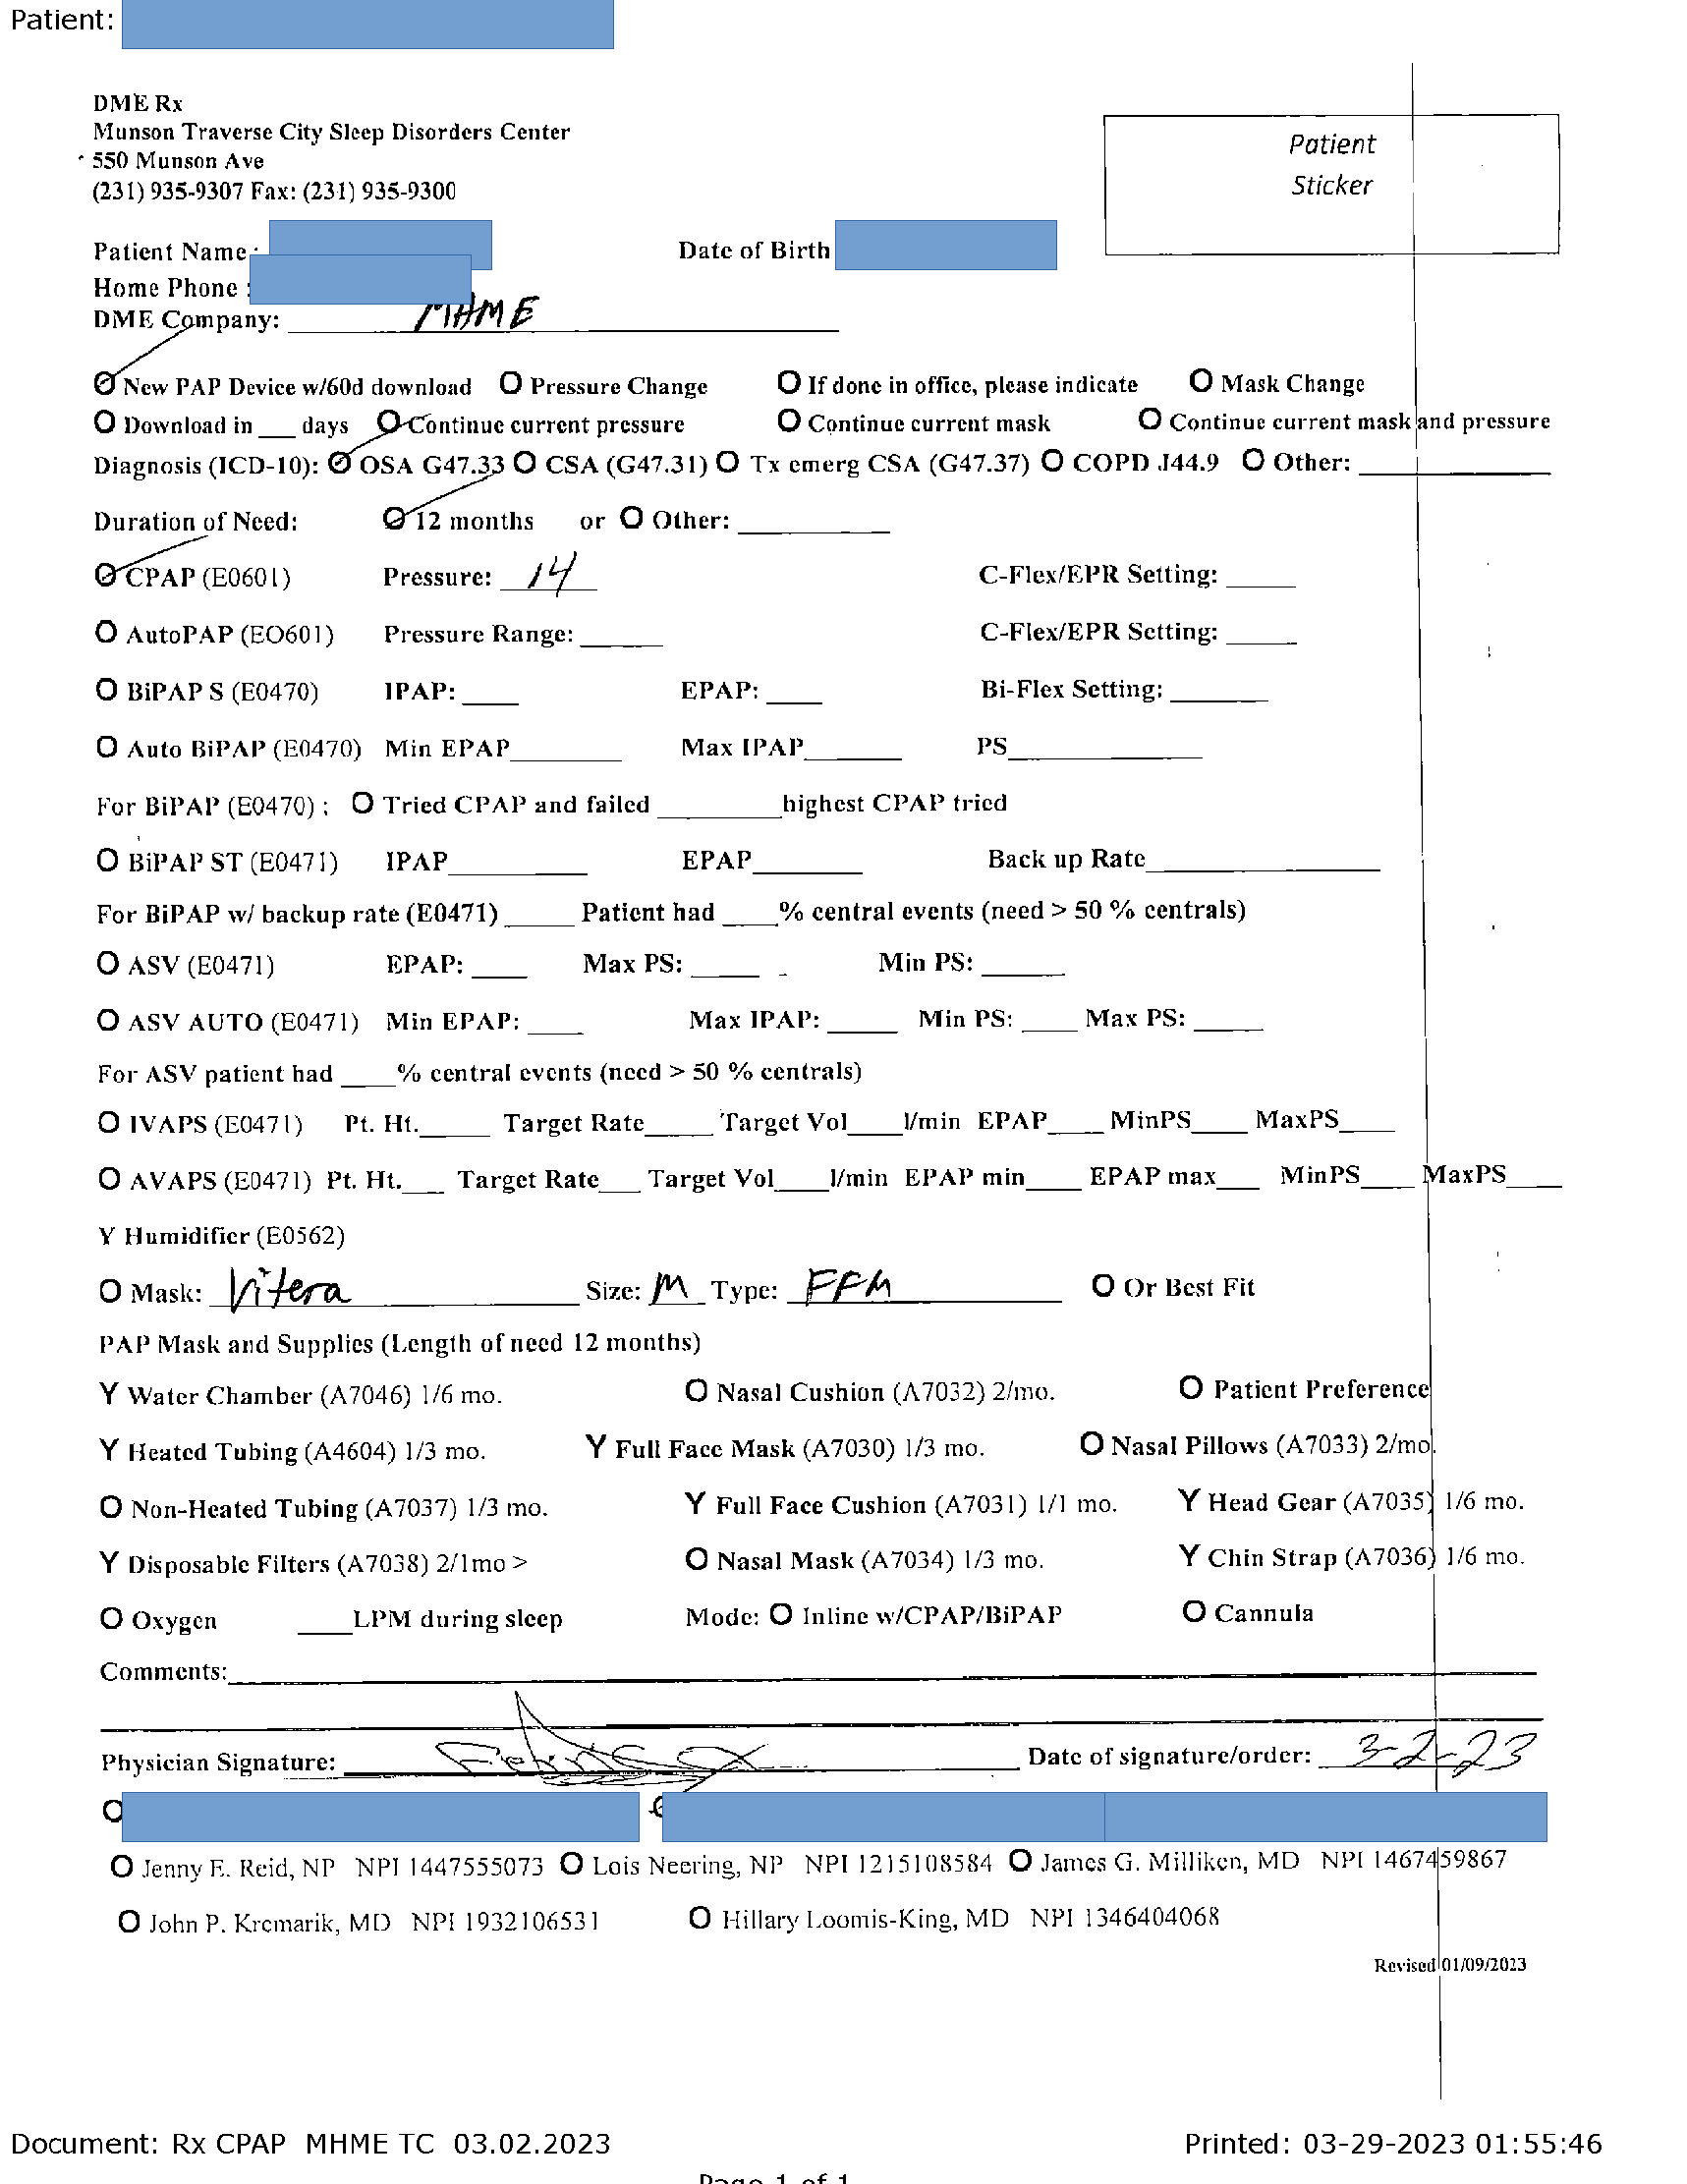 Patient:
DME Rx
Munson Traverse City Sleep Disorders Center
550 Munson Ave
(231) 935-9307 Fax: (231) 935-9300
Patient
Sticker
Patient Name : Date of Birth
Home Phone :
DME Company: MHME
New PAP Device w/60d download O Pressure Change O If done in office, please indicate O Mask Change
O Download in ___ days O Continue current pressure O Continue current mask O Continue current mask and pressure
Diagnosis (ICD-10): O OSA G47.33 O CSA (G47.31) O Tx emerg CSA (G47.37) O COPD J44.9 O Other: ___
Duration of Need: O 12 months or O Other: ___
O CPAP (E0601) Pressure: 14 C-Flex/EPR Setting: ___
O AutoPAP (EO601) Pressure Range: ___ C-Flex/EPR Setting: ___
O BiPAP S (E0470) IPAP: ___ EPAP: ___ Bi-Flex Setting: ___
O Auto BiPAP (E0470) Min EPAP ___ Max IPAP ___ PS ___
For BiPAP (E0470) : O Tried CPAP and failed ___ highest CPAP tried
O BiPAP ST (E0471) IPAP ___ EPAP ___ Back up Rate ___
For BiPAP w/ backup rate (E0471) ___ Patient had ___% central events (need > 50 % centrals)
O ASV (E0471) EPAP: ___ Max PS: ___ Min PS: ___
O ASV AUTO (E0471) Min EPAP: ___ Max IPAP: ___ Min PS: ___ Max PS: ___
For ASV patient had ___% central events (need > 50 % centrals)
O IVAPS (E0471) Pt. Ht. ___ Target Rate ___ Target Vol ___ l/min EPAP ___ MinPS ___ MaxPS ___
O AVAPS (E0471) Pt. Ht. ___ Target Rate ___ Target Vol ___ l/min EPAP min ___ EPAP max ___ MinPS ___ MaxPS ___
Y Humidifier (E0562)
O Mask: Vitera Size: M Type: FFM O Or Best Fit
PAP Mask and Supplies (Length of need 12 months)
Y Water Chamber (A7046) 1/6 mo. O Nasal Cushion (A7032) 2/mo. O Patient Preference
Y Heated Tubing (A4604) 1/3 mo. Y Full Face Mask (A7030) 1/3 mo. O Nasal Pillows (A7033) 2/mo.
O Non-Heated Tubing (A7037) 1/3 mo. Y Full Face Cushion (A7031) 1/1 mo. Y Head Gear (A7035) 1/6 mo.
Y Disposable Filters (A7038) 2/1mo > O Nasal Mask (A7034) 1/3 mo. Y Chin Strap (A7036) 1/6 mo.
O Oxygen ___ LPM during sleep Mode: O Inline w/CPAP/BiPAP O Cannula
Comments:
Physician Signature: Date of signature/order: 3-2-23
O Jenny E. Reid, NP NPI 1447555073 O Lois Neering, NP NPI 1215108584 O James G. Milliken, MD NPI 1467459867
O John P. Kremarik, MD NPI 1932106531 O Hillary Loomis-King, MD NPI 1346404068
Revised 01/09/2023
Document: Rx CPAP MHME TC 03.02.2023 Printed: 03-29-2023 01:55:46
Page 1 of 1